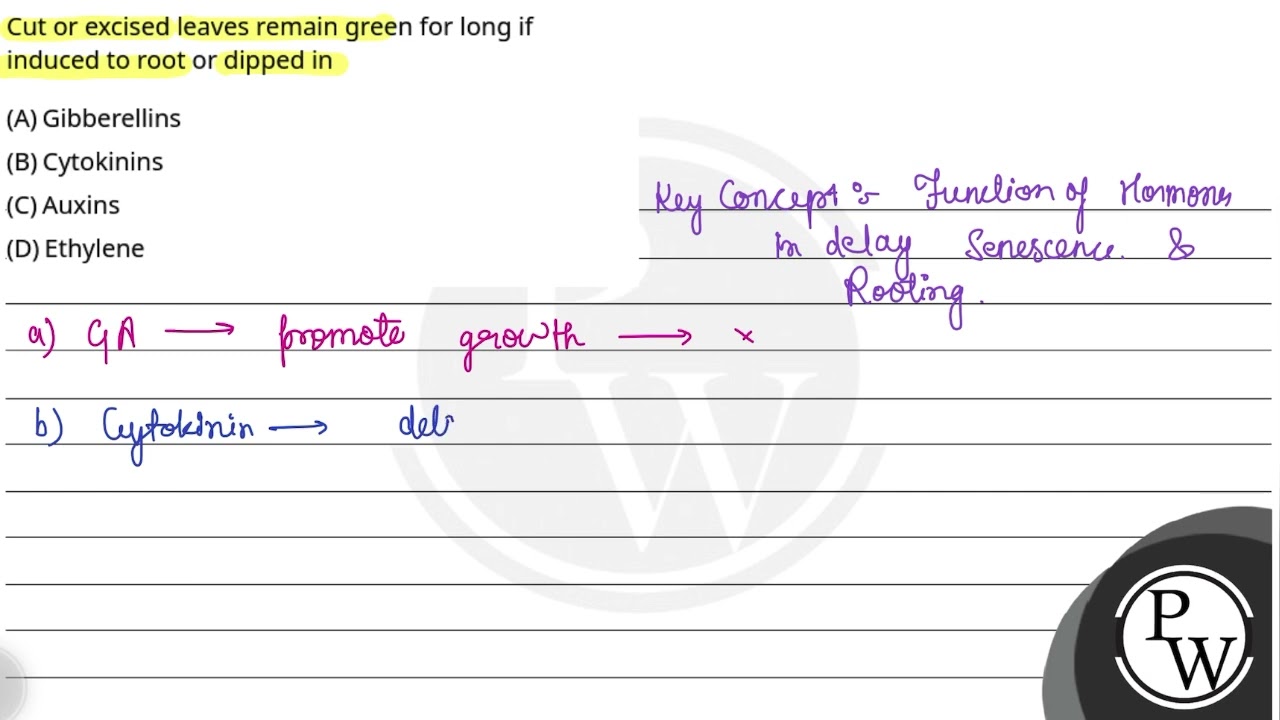 Cut or excised leaves remain green for long if
induced to root or dipped in
(A) Gibberellins
(B) Cytokinins
(C) Auxins
(D) Ethylene
Key Concept :- Function of Hormones
in delay Senescence. &
Rooting.
a) GA → promote growth → ×
b) Cytokinin → del
P
W
PW